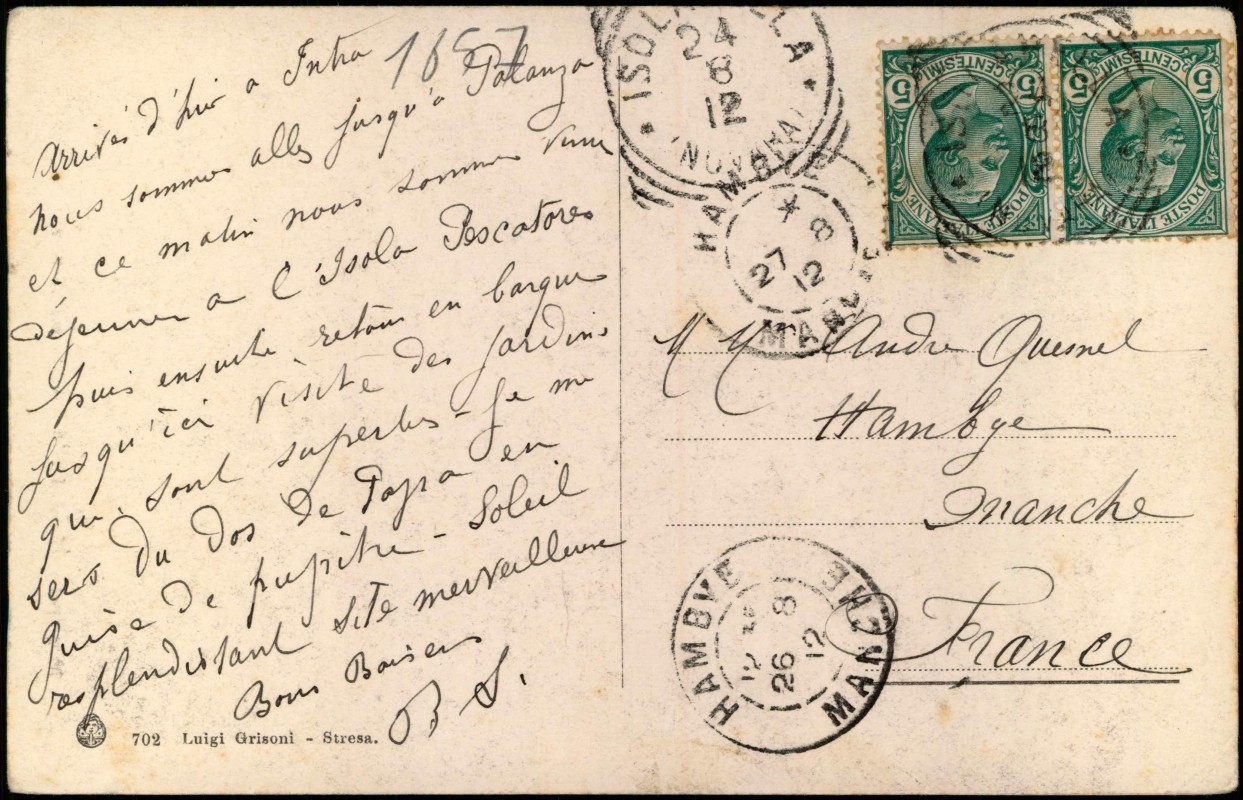 1657
Arrivés d'hier a Intra
nous sommes allés jusqu'à Palanza
et ce matin nous sommes venu
déjeuner a l'Isola Pescatores
puis ensuite retour en barque
jusqu'ici visite des jardins
qui sont superbes - Je me
sers du dos de Papa en
guise de pupitre - Soleil
resplendissant site merveilleux
Bons Baisers
B S.
702 Luigi Grisoni - Stresa.
ISOLA BELLA
24
8
12
(NOVARA)
HAMBYE
27 8
12
MANCHE
5 CENTESIMI 5
POSTE ITALIANE
5 CENTESIMI 5
POSTE ITALIANE
M M André Quesnel
Hambye
Manche
France
HAMBYE
26 8
12
MANCHE